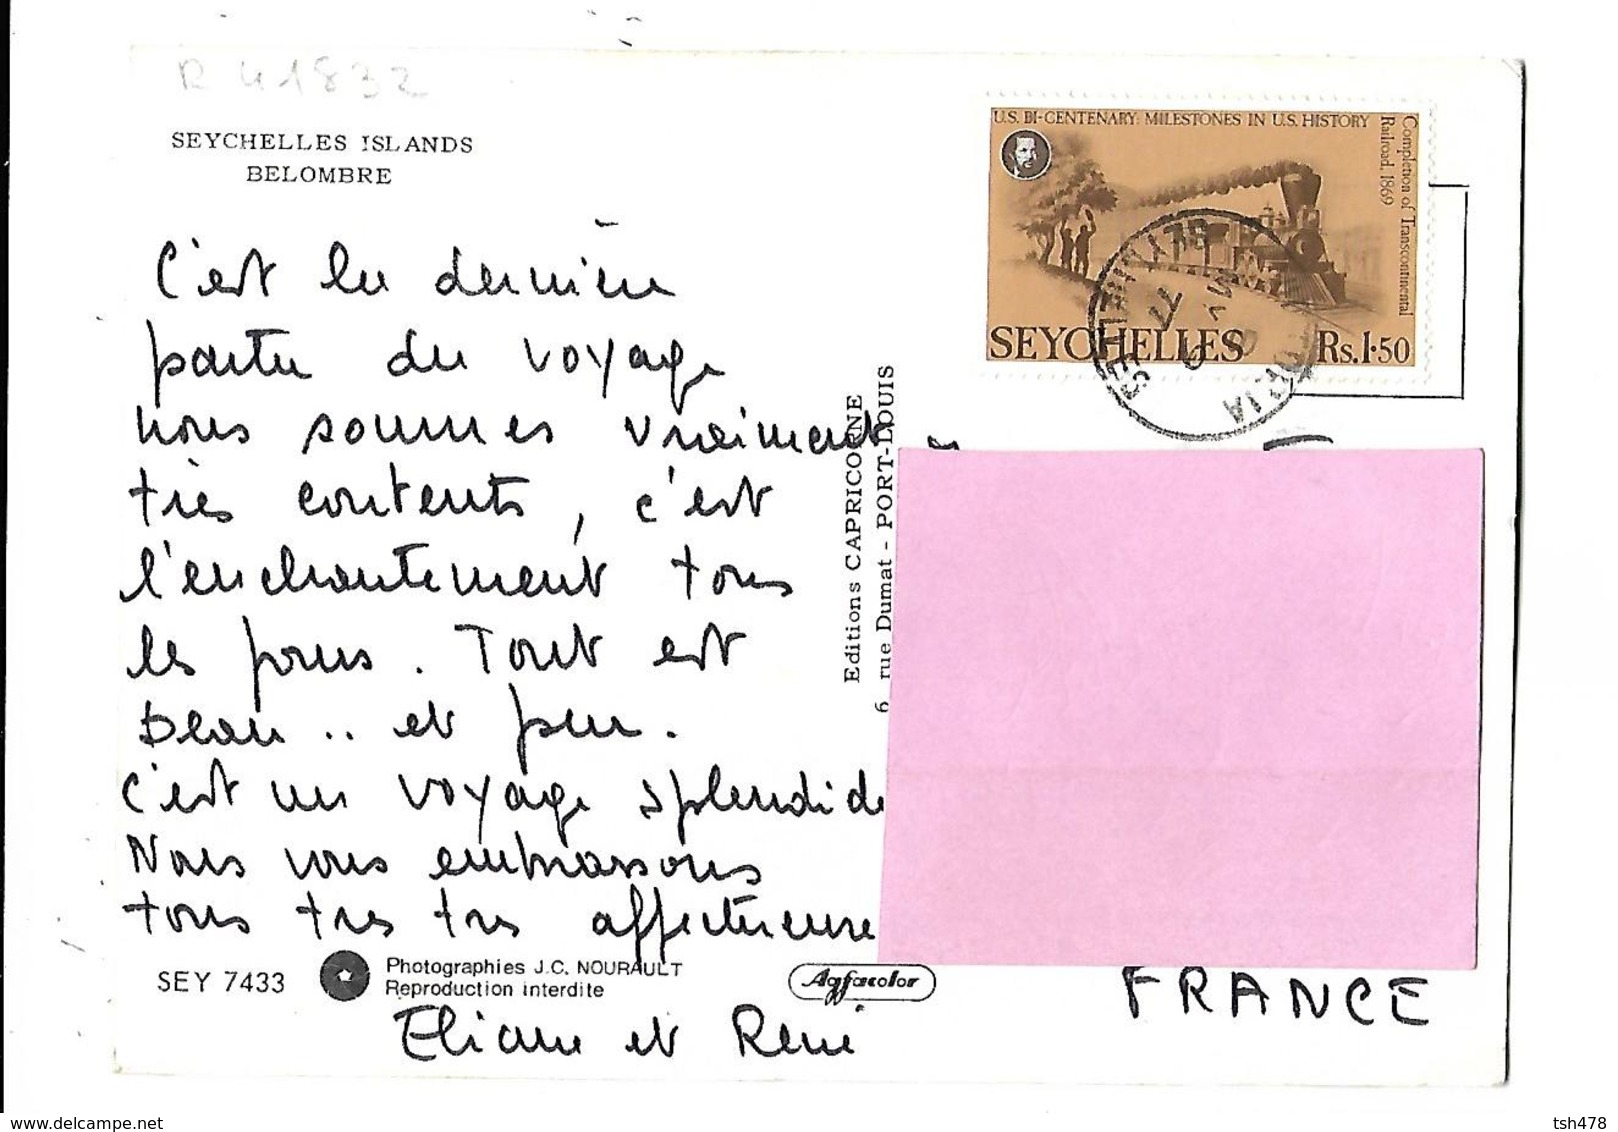 R 41832
SEYCHELLES ISLANDS
BELOMBRE
C'est la dernière
partie du voyage
nous sommes vraiment
très contents, c'est
l'enchantement tous
les jours. Tout est
beau .. et pur.
C'est un voyage splendide
Nous vous embrassons
tous très très affectueuse
Eliane et René
SEY 7433
Photographies J.C. NOURAULT
Reproduction interdite
Agfacolor
Editions CAPRICORNE
6 rue Dumat - PORT-LOUIS
U.S. BI-CENTENARY: MILESTONES IN U.S. HISTORY
Completion of Transcontinental
Railroad, 1869
SEYCHELLES Rs.1·50
VICTORIA
SEYCHELLES
77
FRANCE
www.delcampe.net
tsh478